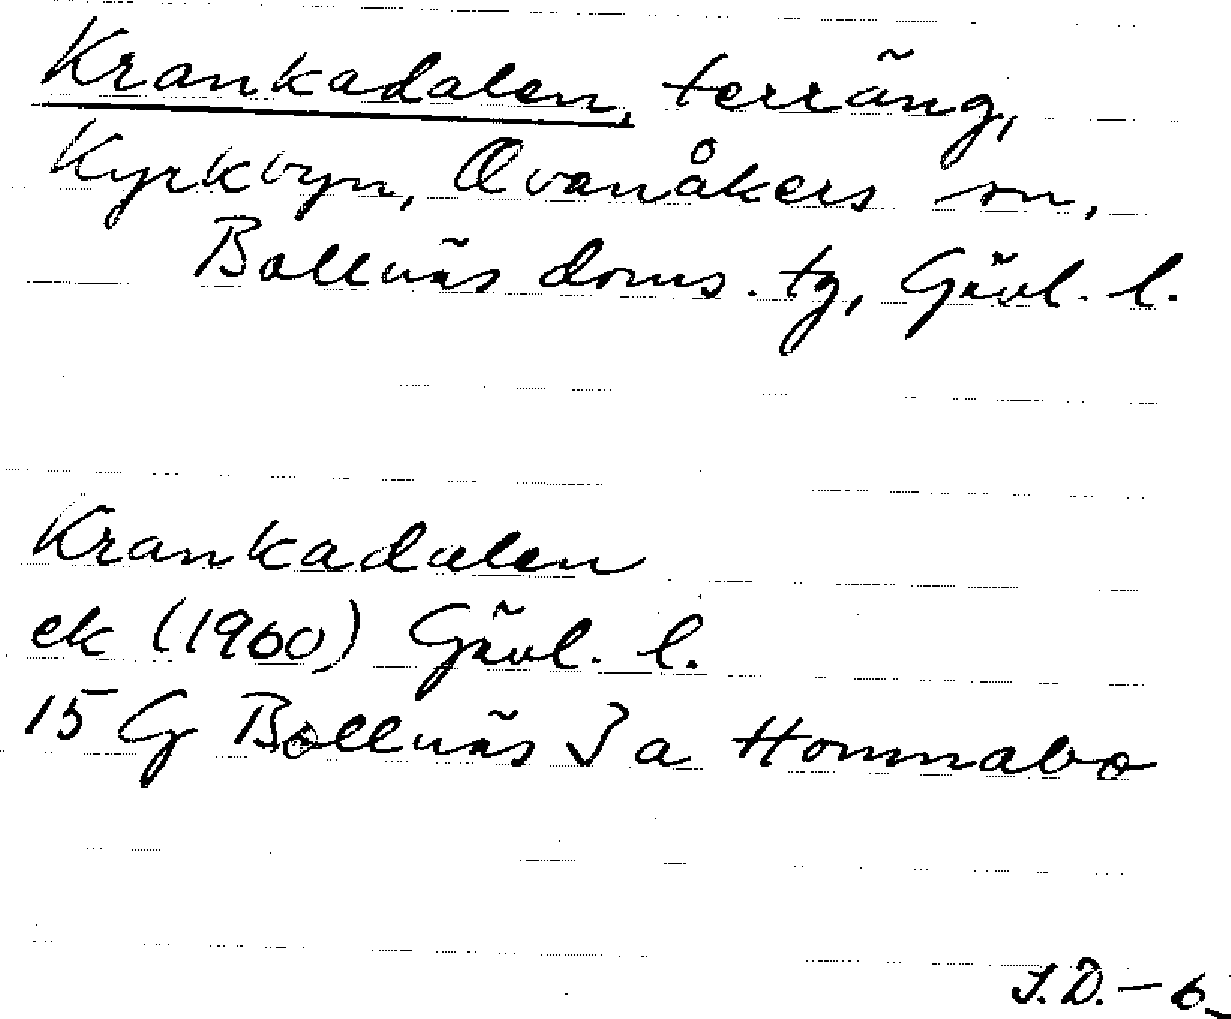 Krankadalen, terräng,
Kyrkbyn, Ovanåkers sn,
Bollnäs doms. tg, Gävl. l.
Krankadalen
ek (1960) Gävl. l.
15 G Bollnäs J a Hommabo
J.D. – 6